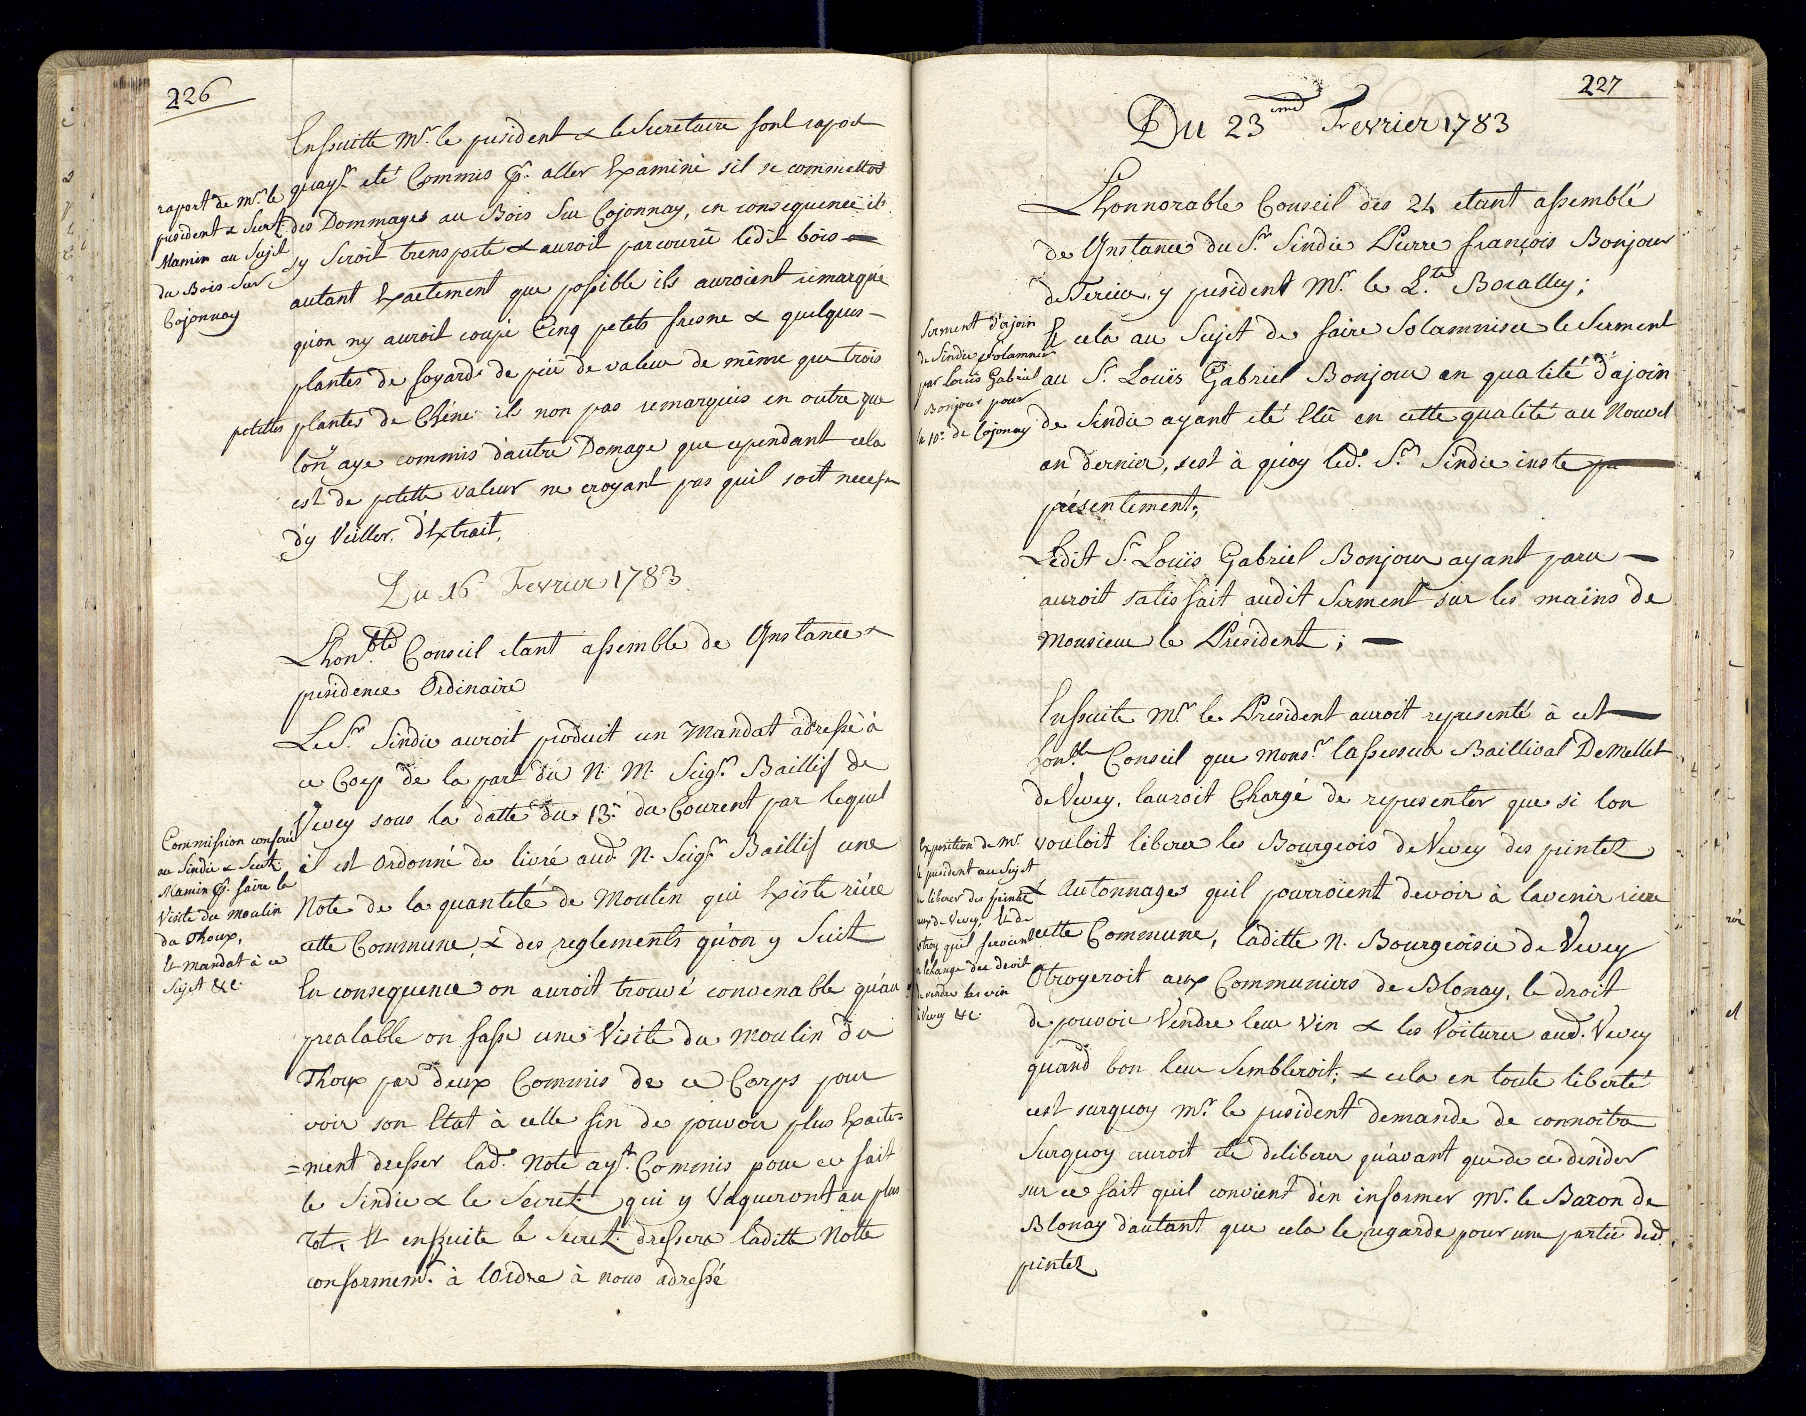 226
Ensuitte Mr. le president & le Secretaire font raport
quayt. eté Commis pr. aller Examiné sil se commettoit
des Dommages au Bois Sur Cojonnay, en consequence ils
sy Seroit transporté & auroit parcourü ledit bois —
autant Exactement que possible ils auroient remarqué
qu'on ny auroit coupé Cinq petits fresne & quelques —
plantes de foyards de peü de valeur de même que trois
petittes plantes de Chéne ils non pas remarqués en outre que
lon aye commis d'autre Domage que cependant cela
est de petitte valeur ne croyant pas quil soit necess.
d'y Veiller. d'Extrait,
raport de Mr. le
president & Secret.
Mamin au Sujet
du Bois Sur
Cojonnay
Du 16 Fevrier 1783.
Lhonble. Conseil etant assemblé de Instance &
presidence Ordinaire
Le Sr. Sindic auroit produit un Mandat adressé à
ce Corp de la part du N. M. Seigr. Baillif de
Vevey sous la datte du 13e. du Courent par lequel
il est Ordonné de livré aud. N. Seigr. Baillif une
Note de la quantité de Moulin qui Existe riére
cette Commune, & des reglements qu'on y Suit
En consequence on auroit trouvé convenable qu'au
prealable on fasse une Visite du Moulin du
Thoux par deux Commis de ce Corps pour
voir son Etat à celle fin de pouvoir plus Exacte=
=ment dresser lad. Note ayt. Commis pour ce fait
le Sindic & le Secret. qui y Vaqueront au plus
tot, Et ensuite le Secret. dressera laditte Note
conformemt. à lOrdre à nous adressé
Commission conferé
au Sindic & Secret.
Mamin pr. faire la
Visite du Moulin
du Thoux,
Et mandat à ce
Sujet &c.
227
Du 23eme Fevrier 1783
Lhonnorable Conseil des 24 etant assemblé
de Instance du Sr. Sindic Pierre françois Bonjour
y president Mr. le Lt.
Et cela au Sujet de faire Solamniser le Serment
au Sr. Louïs Gabriel Bonjour en qualité d'ajoin
de Sindic ayant eté Elü en cette qualité au Nouvel
an dernier, sest à quoy led. Sr. Sindic inste
présentement;
Serment d'ajoin
de Sindic Solamnisé
par Louïs Gabriel
Bonjour pour
de Cojonnay
Ledit Sr. Louïs Gabriel Bonjour ayant paru —
auroit satisfait audit Serment sur les mains de
Monsieur le President; —
Ensuite Mr. le President auroit representé à cet —
honble. Conseil que Monsr. lassesseur Baillival DeMellet
de Vevey, lauroit Chargé de representer que si lon
vouloit liberer les Bourgeois de Vevey des pintes
& Autonnages quil pourroïent devoir à lavenir riere
cette Commune, laditte N. Bourgeoisie de Vevey
Otroyeroit aux Communiers de Blonay, le droit
de pouvoir Vendre leur Vin & les Voiturer aud. Vevey
quand bon leur Sembleroit; & cela en toute liberté
cest surquoy Mr. le president demande de connoitre
Surquoy auroit eté deliberer qu'avant que de ce desider
sur ce fait quil convient d'en informer Mr. le Baron de
Blonay d'autant que cela le regarde pour une partie desd.
pintes
Exposition de Mr.
le president au Sujet
de liberer des pintes
de Vevey, Et de
quil feroient
Echange du droit
de vendre les vin
à Vevey &c.